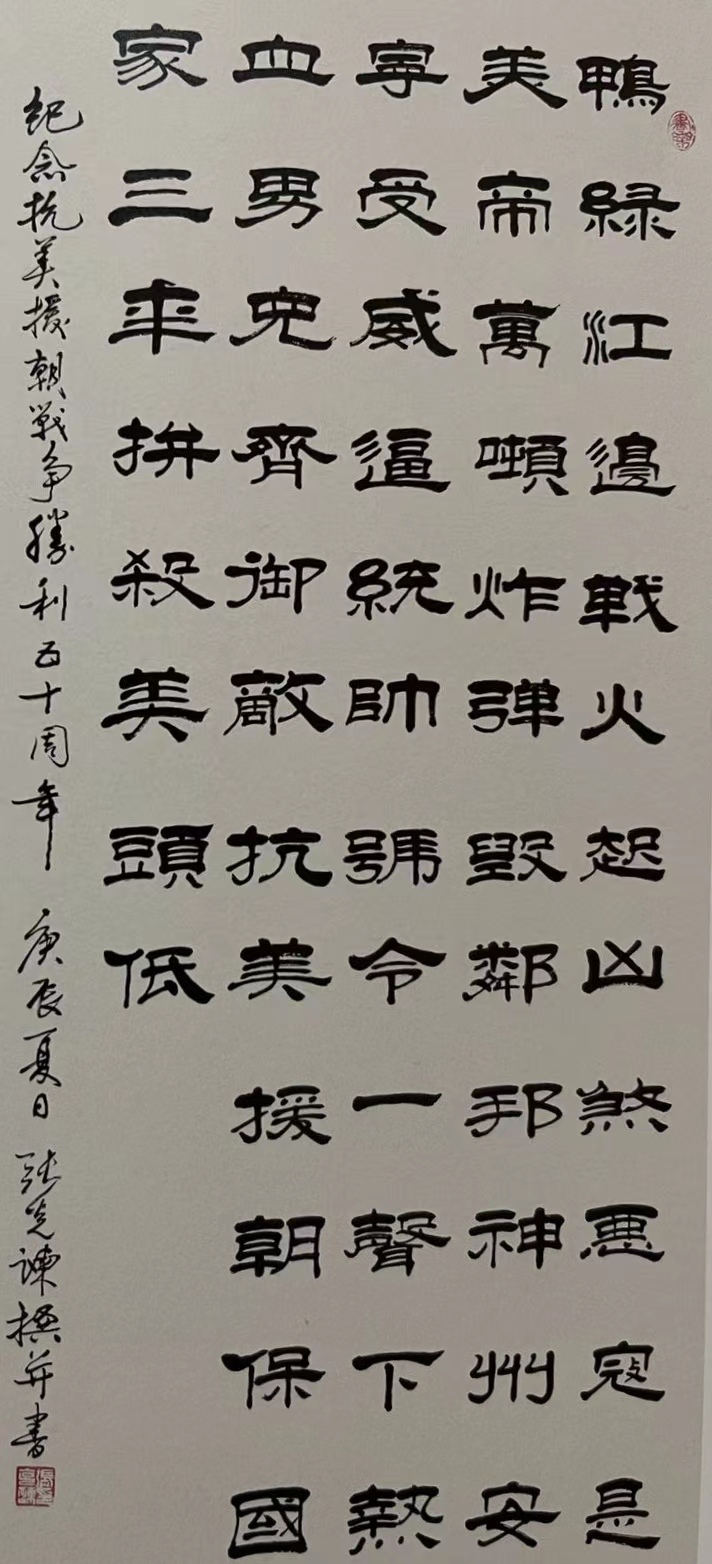 鴨緑江邊戰火起凶煞惡寇是
美帝萬噸炸彈毀鄰邦神州安
寧受威逼統帥號令一聲下熱
血男兒齊御敵抗美援朝保國
家三年拼殺美頭低
紀念抗美援朝戰争勝利五十周年 庚辰夏日 張克諫撰并書